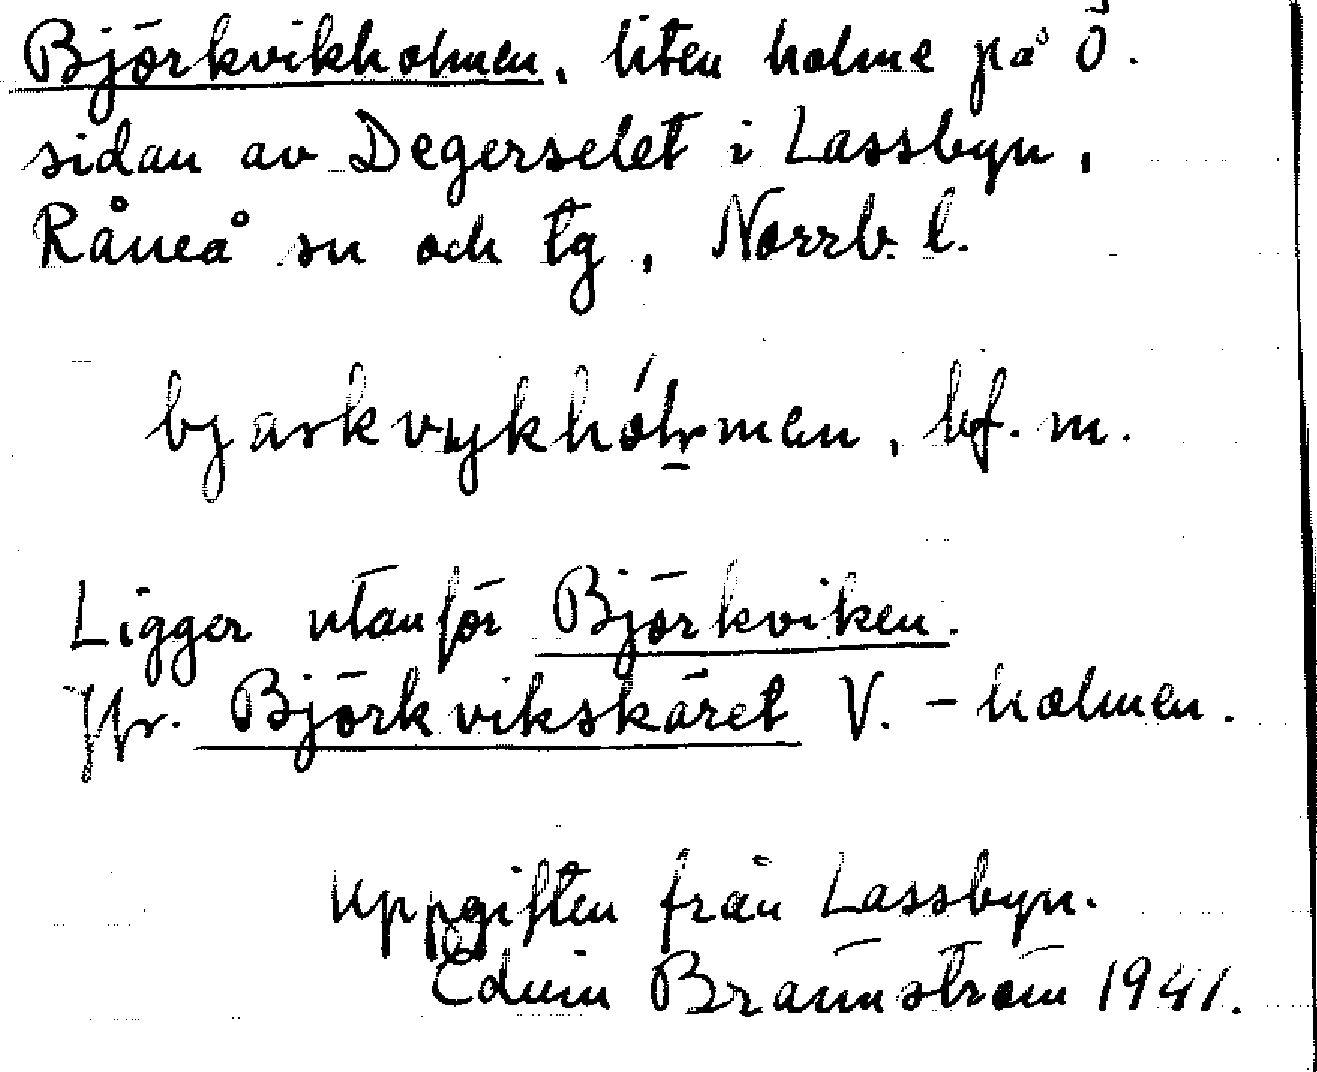 Björkvikholmen, liten holme på Ö.
sidan av Degerselet i Lassbyn,
Råneå sn och tg, Norrb. l.
bjarkvykhólmen, bf. m.
Ligger utanför Björkviken.
Jfr. Björkvikskäret V. - holmen.
Uppgiften från Lassbyn.
Edvin Brännström 1941.